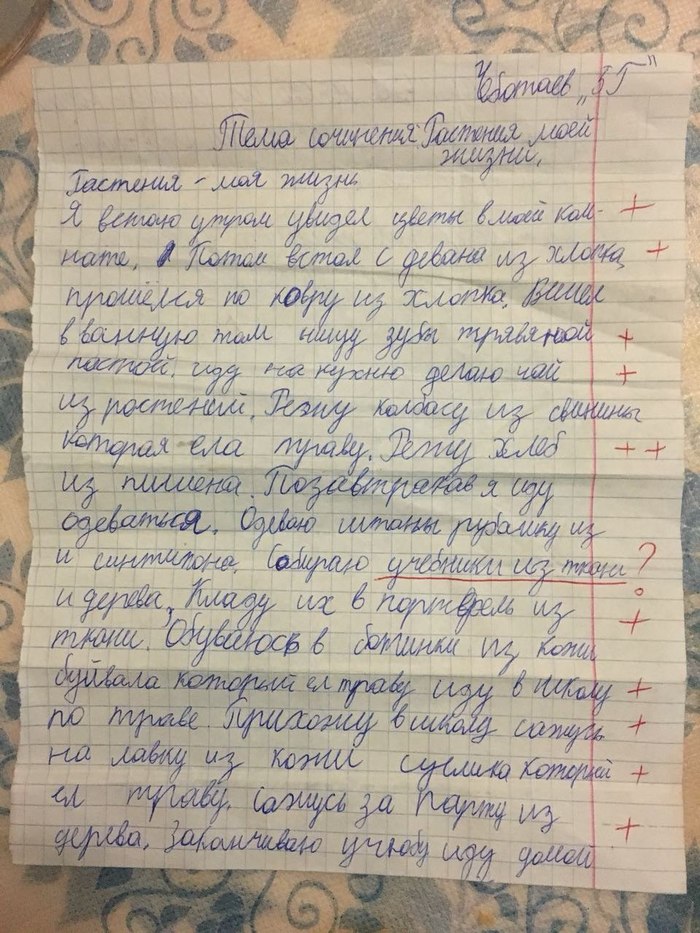 Чеботаев "5Г"
Тема сочинения: Растения моей
жизни.
Растения - моя жизнь
Я встаю утром увидел цветы в моей ком-
нате. Потом встал с девана из хлопка
прошёлся по ковру из хлопка. Вышел
в ванную там чищу зубы трявяной
пастой. иду на кухню делаю чай
из ростений. Режу колбасу из свинины
которая ела траву. Режу хлеб
из пшена. Позавтракав я иду
одеваться. Одеваю штаны рубашку из
и синтипона. Собираю учебники из ткани ?
и дерева. Кладу их в портфель из
ткани. Обуваюсь в ботинки из кожи
буйвала который ел траву иду в школу
по траве. Прихожу в школу сажусь
на лавку из кожи суслика который
ел траву. сажусь за парту из
дерева. Заканчиваю учюбу иду домой